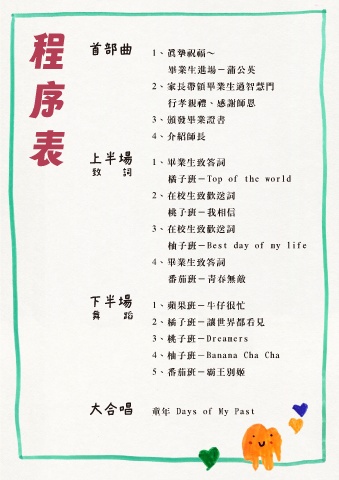 程序表
首部曲
1、真摯祝福～
畢業生進場－蒲公英
2、家長帶領畢業生過智慧門
行孝親禮、感謝師恩
3、頒發畢業證書
4、介紹師長
上半場
致 詞
1、畢業生致答詞
橘子班－Top of the world
2、在校生致歡送詞
桃子班－我相信
3、在校生致歡送詞
柚子班－Best day of my life
4、畢業生致答詞
番茄班－青春無敵
下半場
舞 蹈
1、蘋果班－牛仔很忙
2、橘子班－讓世界都看見
3、桃子班－Dreamers
4、柚子班－Banana Cha Cha
5、番茄班－霸王別姬
大合唱
童年 Days of My Past